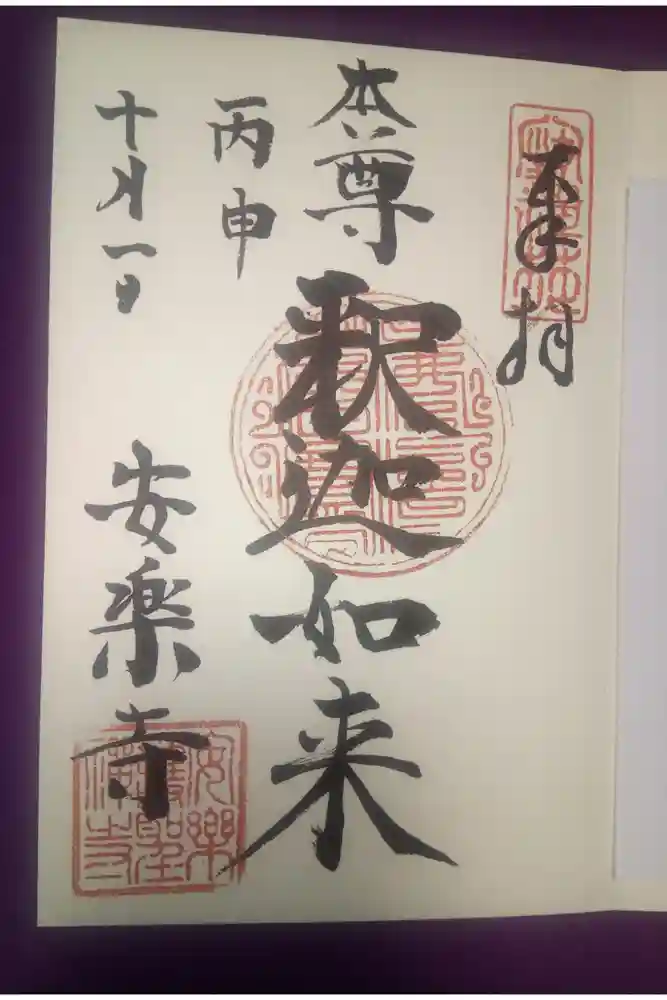 奉拝
本尊
釈迦如来
丙申
十月一日
安楽寺